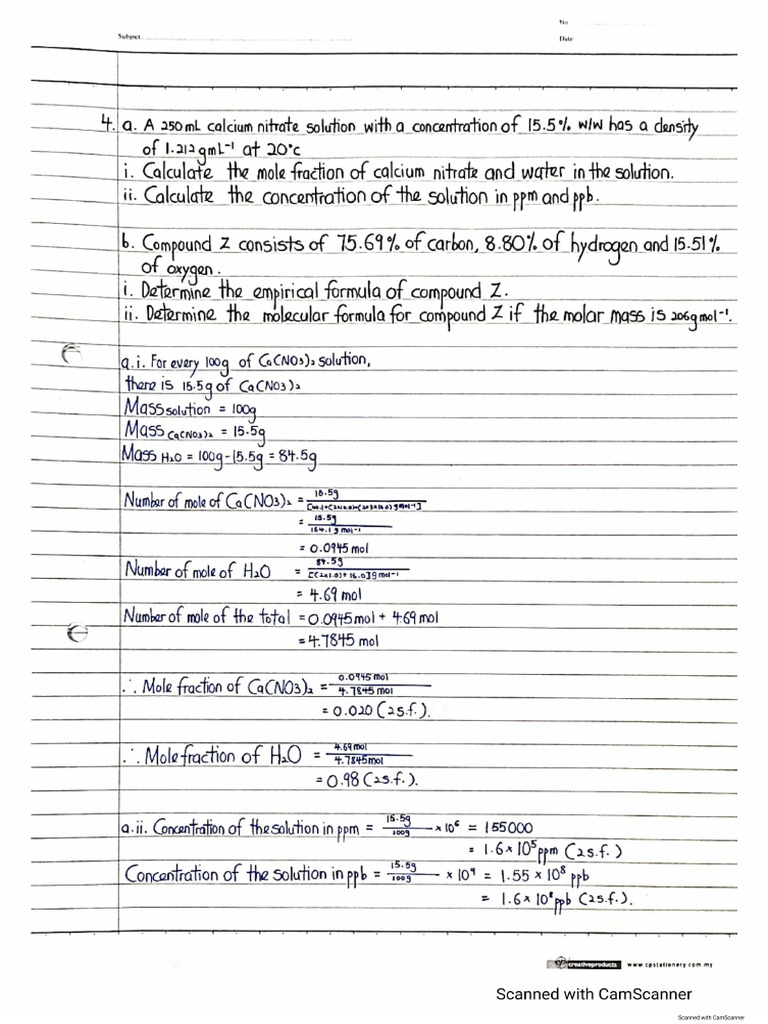 No
Subject
Date
4. a. A 250mL calcium nitrate solution with a concentration of 15.5% w/w has a density
of 1.212gmL⁻¹ at 20°c
i. Calculate the mole fraction of calcium nitrate and water in the solution.
ii. Calculate the concentration of the solution in ppm and ppb.
b. Compound Z consists of 75.69% of carbon, 8.80% of hydrogen and 15.51%
of oxygen.
i. Determine the empirical formula of compound Z.
ii. Determine the molecular formula for compound Z if the molar mass is 206gmol⁻¹.
a.i. For every 100g of Ca(NO3)₂ solution,
there is 15.5g of Ca(NO3)₂
Mass solution = 100g
Mass Ca(NO3)₂ = 15.5g
Mass H₂O = 100g-15.5g = 84.5g
Number of mole of Ca(NO3)₂ = 15.5g
= 15.5g / 164.1gmol⁻¹
= 0.0945 mol
Number of mole of H₂O = 84.5g / [(2x1.0)+16.0]gmol⁻¹
= 4.69 mol
Number of mole of the total = 0.0945mol + 4.69mol
= 4.7845 mol
∴ Mole fraction of Ca(NO3)₂ = 0.0945 mol / 4.7845 mol
= 0.020 (2s.f.).
∴ Mole fraction of H₂O = 4.69mol / 4.7845mol
= 0.98 (2s.f.).
a.ii. Concentration of the solution in ppm = 15.5g / 100g × 10⁶ = 155000
= 1.6 × 10⁵ ppm (2s.f.)
Concentration of the solution in ppb = 15.5g / 100g × 10⁹ = 1.55 × 10⁸ ppb
= 1.6 × 10⁸ ppb (2s.f.).
creativeproducts www.cpstationery.com.my
Scanned with CamScanner
Scanned with CamScanner